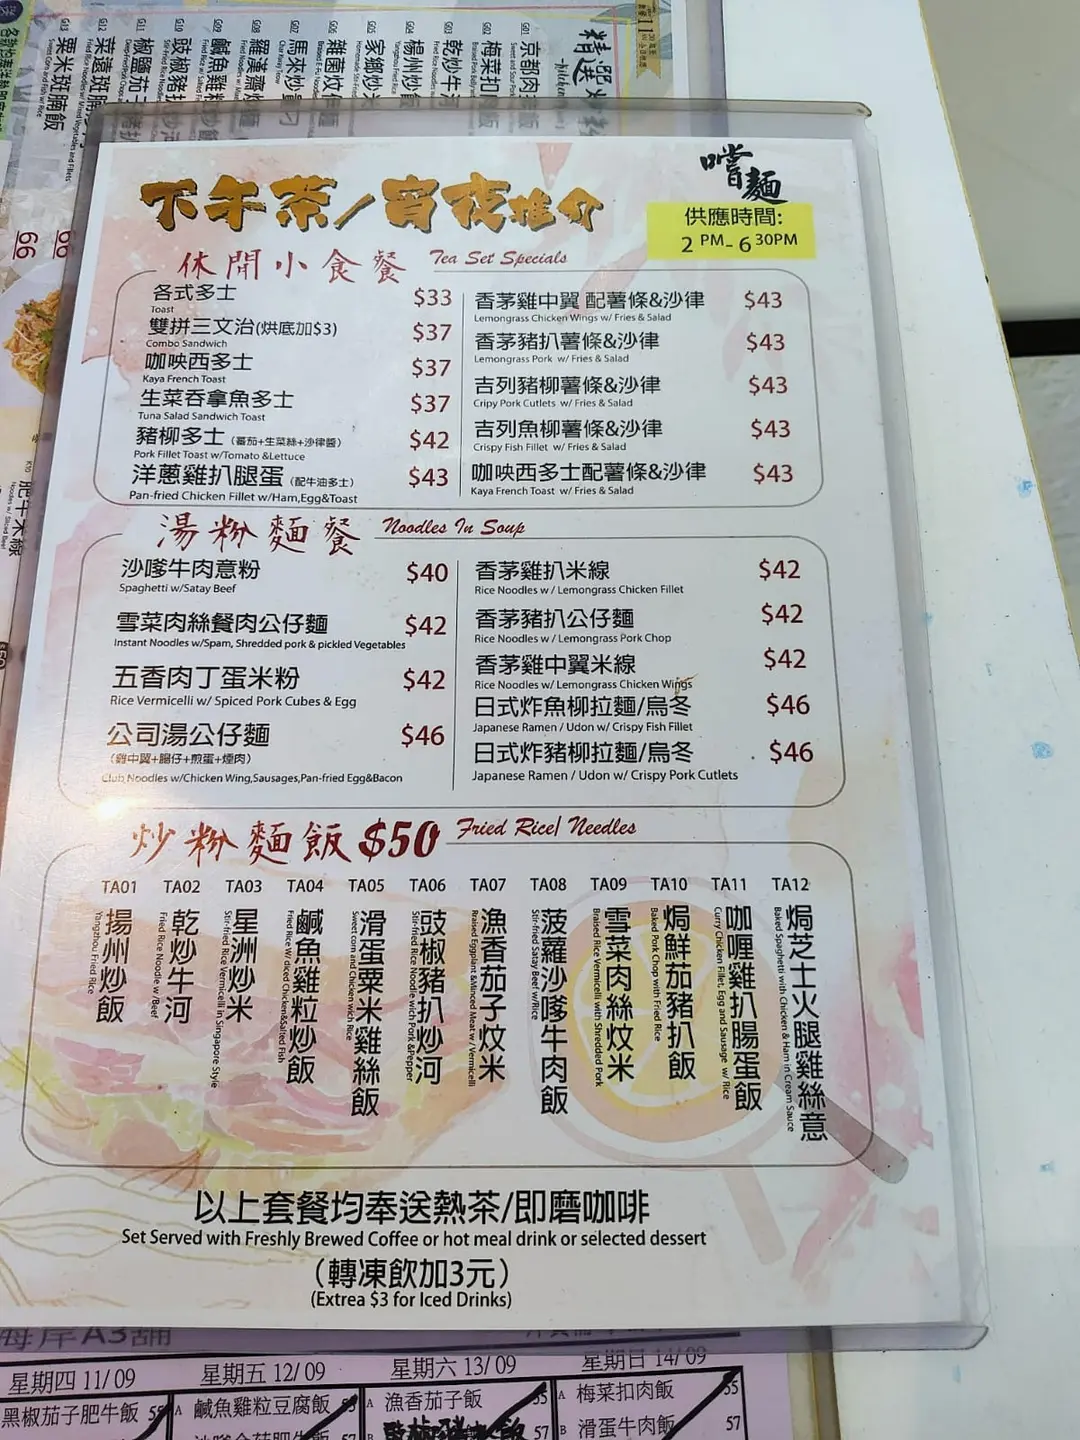 精選
G01 京都肉
G02 梅菜扣肉飯
G03 乾炒牛河
Fried Rice Noodles
G04 楊州炒飯
G05 家鄉炒米
G06 雜菌炆伊麵
G07 馬來炒貴刁
G08 羅漢齋炒麵
G09 鹹魚雞粒炒飯
G10 豉椒豬扒炒河
G11 椒鹽茄子豬扒
G12 菜遠斑腩
G13 粟米斑腩飯
Sweet Corn and Fish w/ Rice
66
66
肥牛米線
Noodles w/ Sliced Beef
嚐麵
下午茶/宵夜推介
供應時間:
2 PM - 6 30PM
休閒小食餐 Tea Set Specials
各式多士 $33
Toast
雙拼三文治(烘底加$3) $37
Combo Sandwich
咖央西多士 $37
Kaya French Toast
生菜吞拿魚多士 $37
Tuna Salad Sandwich Toast
豬柳多士 (蕃茄+生菜絲+沙律醬) $42
Pork Fillet Toast w/Tomato &Lettuce
洋蔥雞扒腿蛋 (配牛油多士) $43
Pan-fried Chicken Fillet w/Ham,Egg&Toast
香茅雞中翼 配薯條&沙律 $43
Lemongrass Chicken Wings w/ Fries & Salad
香茅豬扒薯條&沙律 $43
Lemongrass Pork w/ Fries & Salad
吉列豬柳薯條&沙律 $43
Cripy Pork Cutlets w/ Fries & Salad
吉列魚柳薯條&沙律 $43
Crispy Fish Fillet w/ Fries & Salad
咖央西多士配薯條&沙律 $43
Kaya French Toast w/ Fries & Salad
湯粉麵餐 Noodles In Soup
沙嗲牛肉意粉 $40
Spaghetti w/Satay Beef
雪菜肉絲餐肉公仔麵 $42
Instant Noodles w/Spam, Shredded pork & pickled Vegetables
五香肉丁蛋米粉 $42
Rice Vermicelli w/ Spiced Pork Cubes & Egg
公司湯公仔麵 $46
(雞中翼+腸仔+煎蛋+煙肉)
Club Noodles w/Chicken Wing,Sausages,Pan-fried Egg&Bacon
香茅雞扒米線 $42
Rice Noodles w / Lemongrass Chicken Fillet
香茅豬扒公仔麵 $42
Rice Noodles w / Lemongrass Pork Chop
香茅雞中翼米線 $42
Rice Noodles w/ Lemongrass Chicken Wings
日式炸魚柳拉麵/烏冬 $46
Japanese Ramen / Udon w/ Crispy Fish Fillet
日式炸豬柳拉麵/烏冬 $46
Japanese Ramen / Udon w/ Crispy Pork Cutlets
炒粉麵飯 $50 Fried Rice/ Needles
TA01 揚州炒飯
Yangzhou Fried Rice
TA02 乾炒牛河
Fried Rice Noodle w /Beef
TA03 星洲炒米
Stir-fried Rice Vermicelli in Singapore Style
TA04 鹹魚雞粒炒飯
Fried Rice W/ diced Chicken&Salted Fish
TA05 滑蛋粟米雞絲飯
Sweet corn and Chicken wich Rice
TA06 豉椒豬扒炒河
Stir-fried Rice Noodle wich Pork &Pepper
TA07 漁香茄子炆米
Rraised Eggplant&Minced Meat w / Vermicelli
TA08 菠蘿沙嗲牛肉飯
Stir-fried Satay Beef w/Rice
TA09 雪菜肉絲炆米
Braised Rice Vermicelli with Shredded Pork
TA10 焗鮮茄豬扒飯
Baked Pork Chop with Fried Rice
TA11 咖喱雞扒腸蛋飯
Curry Chicken Fillet, Egg and Sausage w/ Rice
TA12 焗芝士火腿雞絲意
Baked Spaghetti with Chicken & Ham in Cream Sauce
以上套餐均奉送熱茶/即磨咖啡
Set Served with Freshly Brewed Coffee or hot meal drink or selected dessert
(轉凍飲加3元)
(Extrea $3 for Iced Drinks)
海岸A3舖
星期四 11/09
星期五 12/09
星期六 13/09
星期日 14/09
黑椒茄子肥牛飯
A 鹹魚雞粒豆腐飯
A 漁香茄子飯 55
A 梅菜扣肉飯 55
B 57
B 滑蛋牛肉飯 57